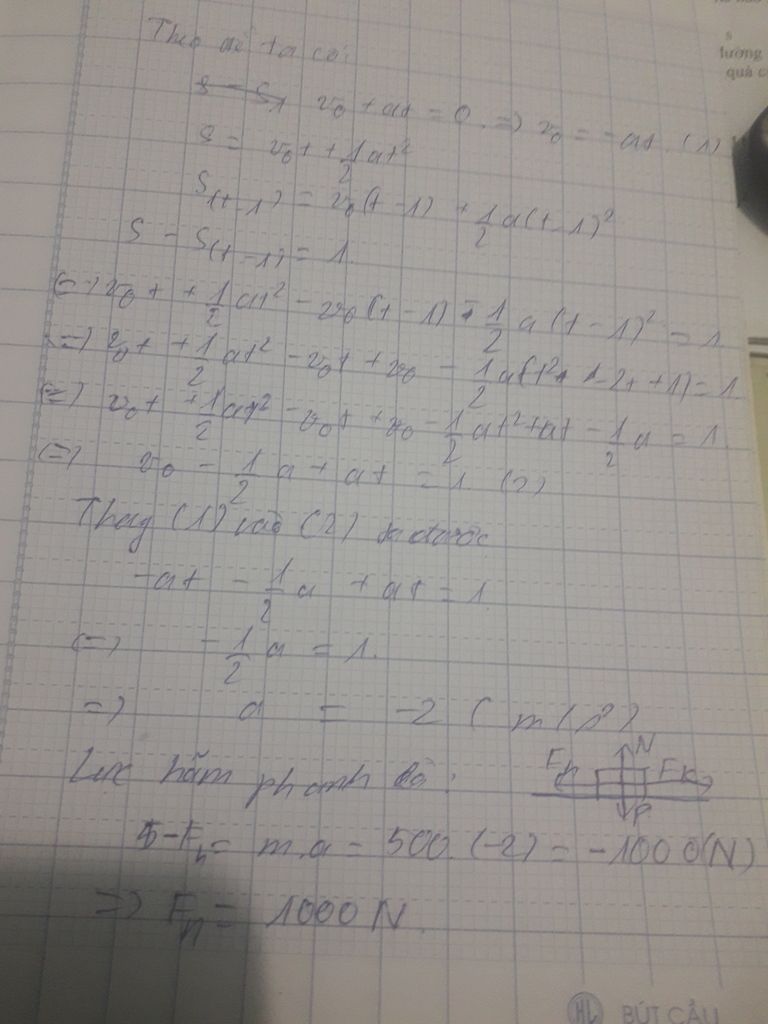 Theo đề ta có:
s = s₁ v₀ + at = 0 => v₀ = -at (1)
s = v₀t + 1/2 at²
S(t-1) = v₀(t-1) + 1/2 a(t-1)²
S - S(t-1) = 1.
(=) v₀t + 1/2 at² - v₀(t-1) - 1/2 a(t-1)² = 1
(=) v₀t + 1/2 at² - v₀t + v₀ - 1/2 a(t² - 2t + 1) = 1
(=) v₀t + 1/2 at² - v₀t + v₀ - 1/2 at² + at - 1/2 a = 1.
(=) v₀ - 1/2 a + at = 1 (2)
Thay (1) vào (2) ta được
-at - 1/2 a + at = 1
(=) - 1/2 a = 1.
=> a = -2 (m/s²)
N
Fh
Fk
P
Lực hãm phanh là:
-Fh = m.a = 500.(-2) = -1000(N)
=> Fh = 1000 N.
HL BÚT CẦU
tường
quả c